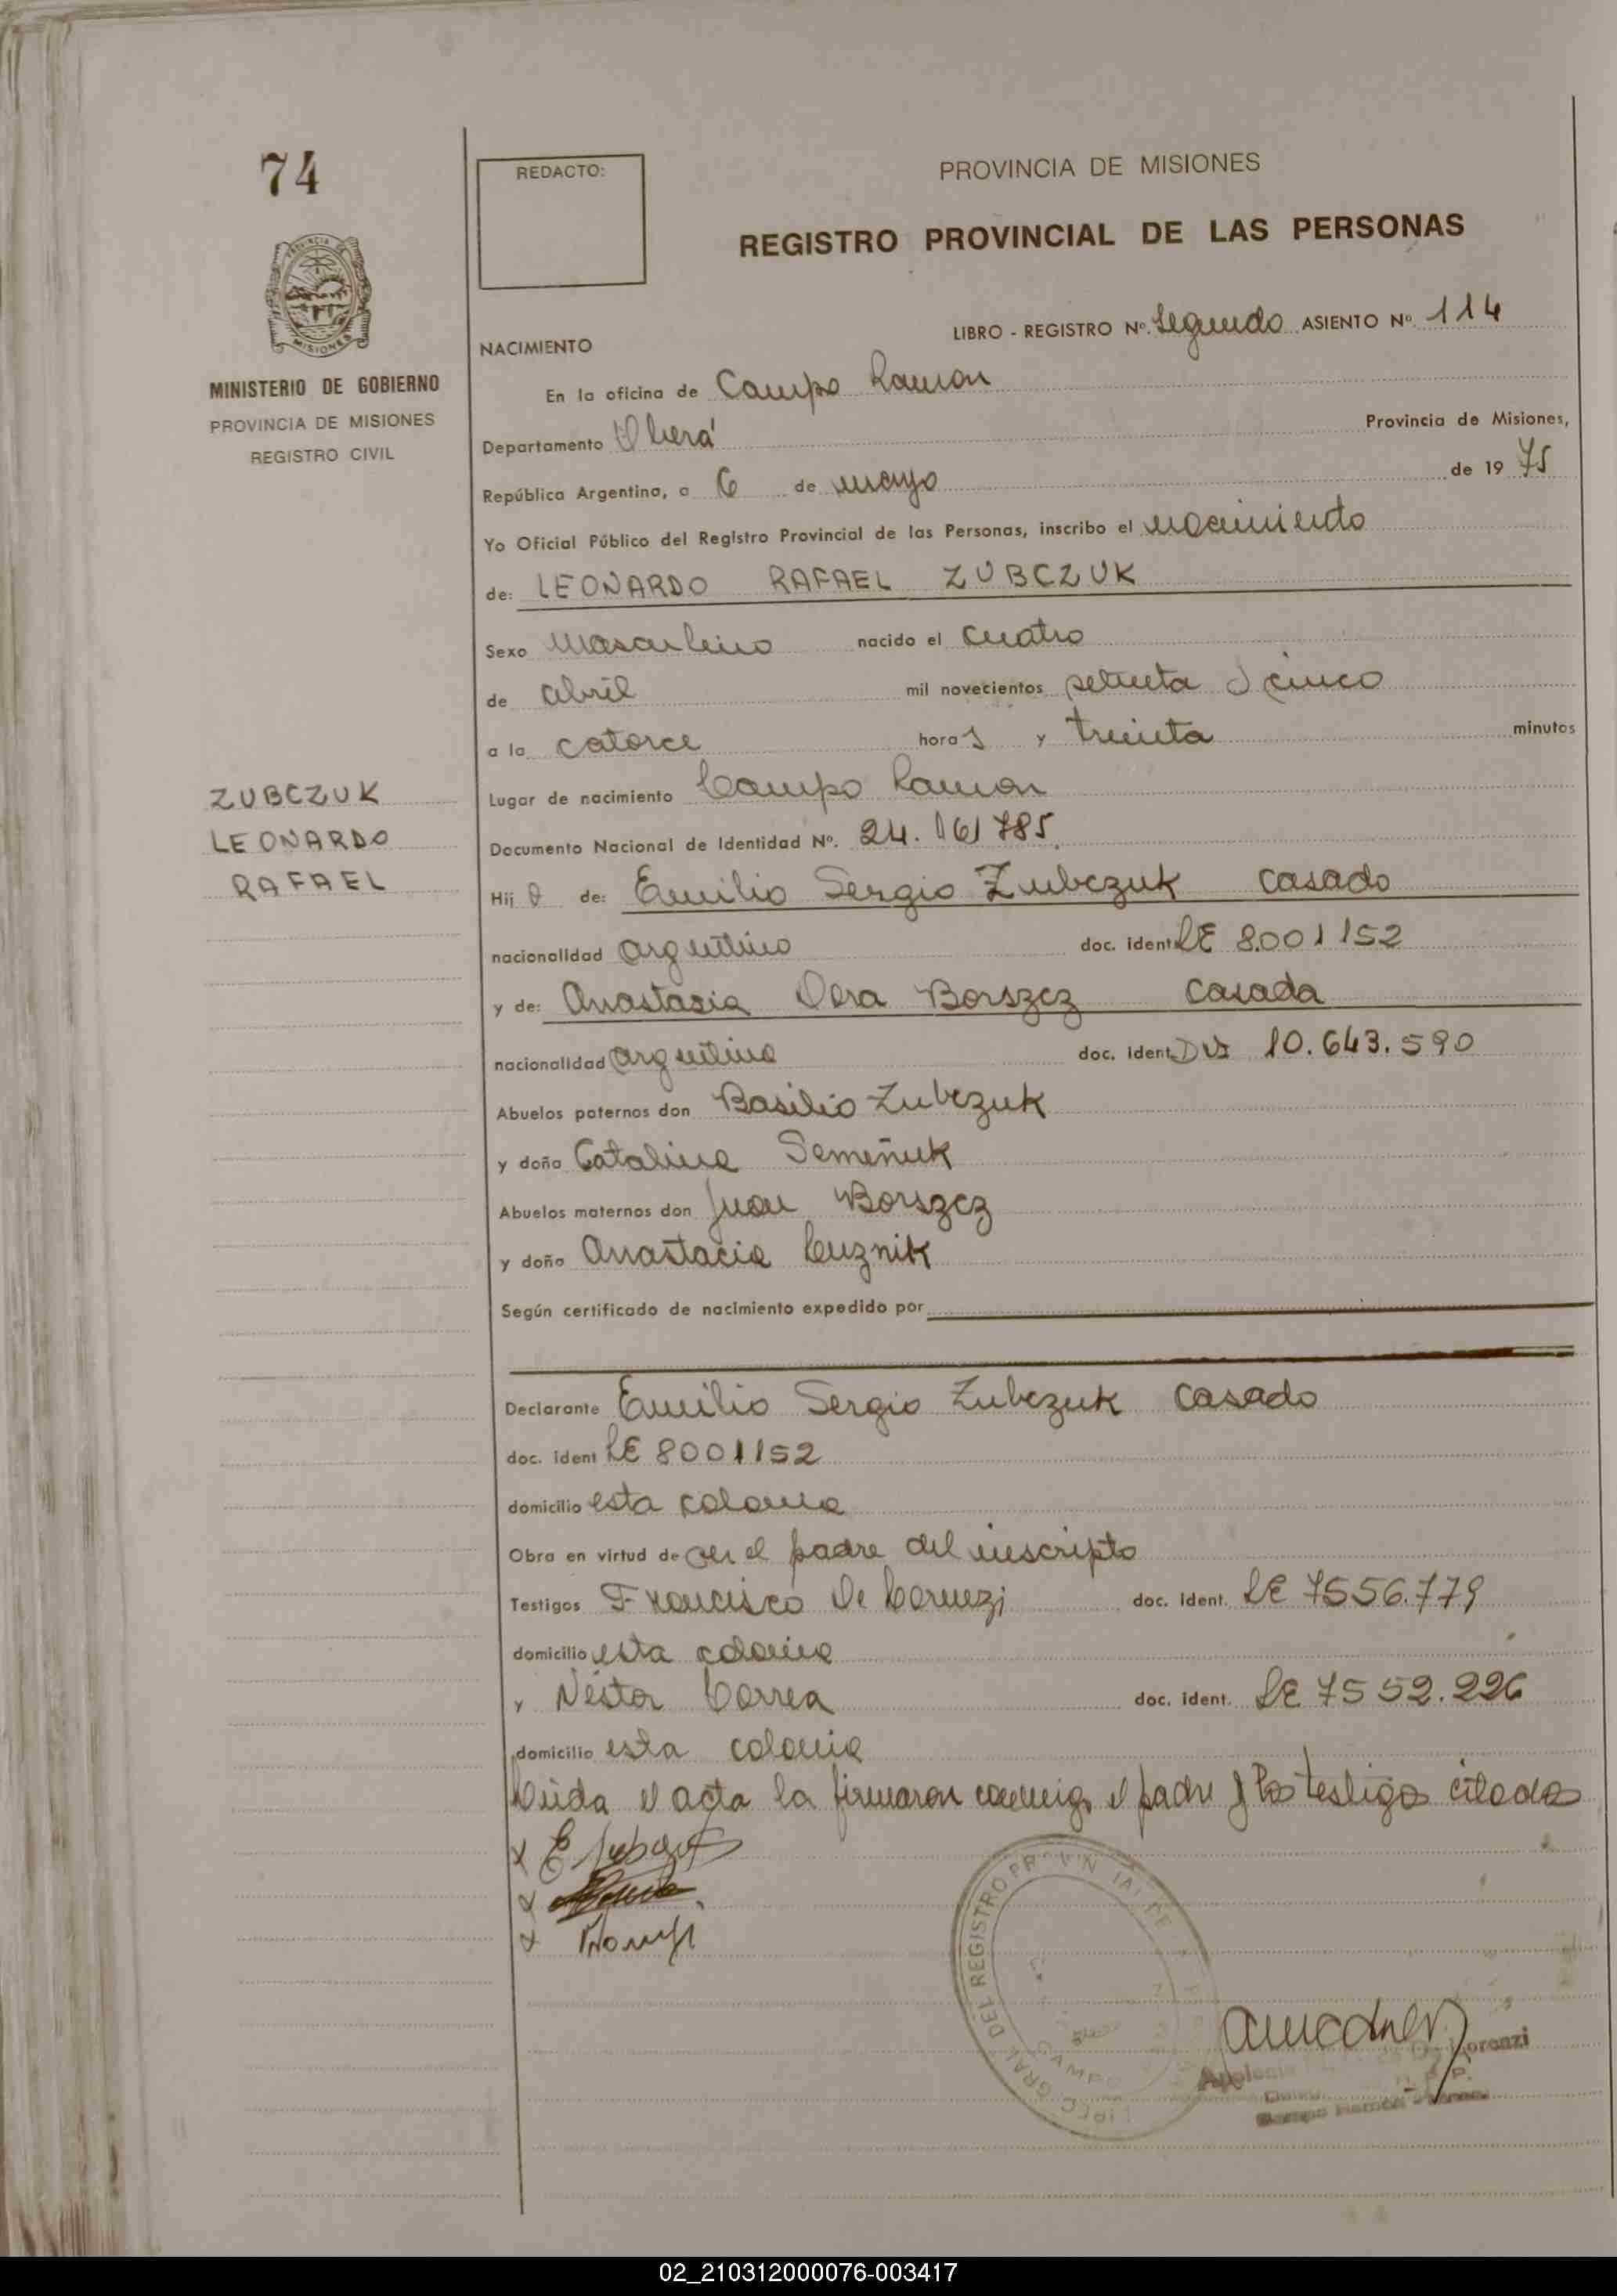 74
REDACTO:
PROVINCIA DE MISIONES
REGISTRO PROVINCIAL DE LAS PERSONAS
MISIONES
MINISTERIO DE GOBIERNO
PROVINCIA DE MISIONES
REGISTRO CIVIL
LIBRO - REGISTRO Nº. Segundo ASIENTO Nº. 114
NACIMIENTO
En la oficina de Campo Ramon
Departamento Oberá Provincia de Misiones,
República Argentina, a 6 de mayo de 19 75
Yo Oficial Público del Registro Provincial de las Personas, inscribo el nacimiento
de: LEONARDO RAFAEL ZUBCZUK
Sexo Masculino nacido el cuatro
de abril mil novecientos setenta y cinco
a la catorce horas y treinta minutos
ZUBCZUK
LEONARDO
RAFAEL
Lugar de nacimiento Campo Ramon
Documento Nacional de Identidad Nº. 24.161785.
Hijo de: Emilio Sergio Zubczuk casado
nacionalidad argentino doc. ident. LE 8.001152
y de: Anastasia Dora Borszcz casada
nacionalidad argentina doc. ident. DNI 10.643.590
Abuelos paternos don Basilio Zubczuk
y doña Catalina Semeñuk
Abuelos maternos don Juan Borszcz
y doña Anastacia Cuznik
Según certificado de nacimiento expedido por
Declarante Emilio Sergio Zubczuk casado
doc. ident LE 8001152
domicilio esta colonia
Obra en virtud de ser el padre del inscripto
Testigos Francisco De Lorenzi doc. ident. LE 7556.779
domicilio esta colonia
y Néstor Correa doc. ident. LE 7552.226
domicilio esta colonia
Leida el acta la firmaron conmigo el padre y los testigos citados
DEL REGISTRO
CAMPO
Lorenzi
02_210312000076-003417